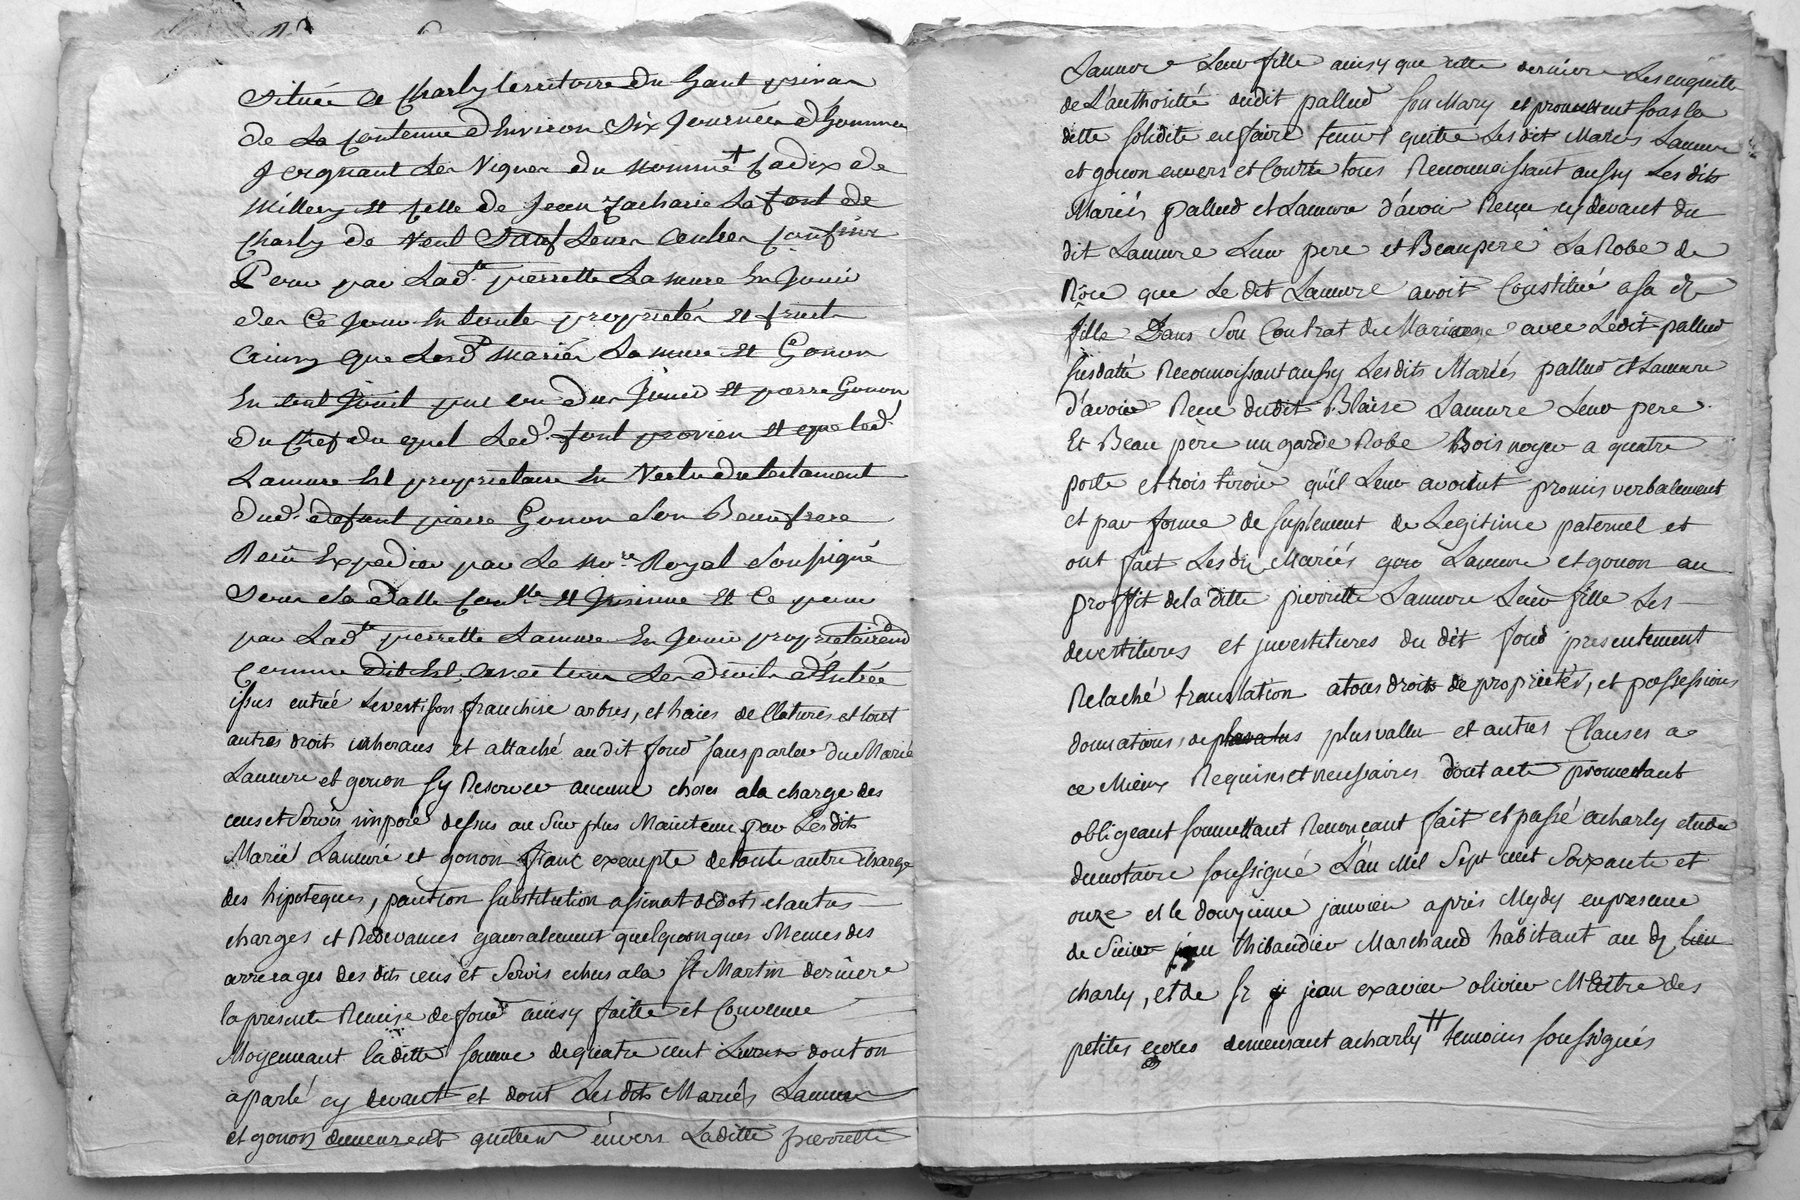 située a Charly territoire du haut
de La Contenue d'Environ Six Journées d'hommes
Joignant Les Vignes du nommé + Cadix de
Millery et Celle de Jean Zacharie Lafont de
Charly de Vent Sauf Leurs autres Confins
Pour par Lad.te pierrette Lamure En Jouir
dès Ce Jour En toute propriétés et fruits
ainsy que Lesd.ts mariés Lamure et Gonon
En ont Jouit par ou du Jouir et pierre Gonon
du Chef du quel Led.t font provien et que led.t
Lamure Est propriétaire En Vertu du testament
dud.t défunt pierre Gonon Son Beaufrere
Reçu Expedier par Le No.re Royal Soussigné
Sous Sa datte et Ce pour
par Lad.te pierrette Lamure En Jouir
Comme dit Est avec tous Les droits d'Entrée
issus entrée franchise arbres, et haies de Clotures et tout
autres droits inherans et attaché audit fond sans par les du Marié
Lamure et gonon sy Reserver aucune choses a la charge des
cens et servis imposé dessus au surplus Maintenu par Les dits
Marié Lamure et gonon franc exempte de toute autre charge
des hipoteques, substitution assinat de dots et autres
charges et Redevances generalement quelquonques Memes des
arrerages des dits cens et servis echus a la St Martin derniere
la presente Remise de fond ainsy faitte et Convenue
Moyennant laditte somme de quatre cent Livres dont on
a parlé cy devant et dont Les dits Mariés Lamure
et gonon demeurent quittes envers Laditte pierrette
Lamure Leur fille ainsy que cette derniere
de L'authorité dudit pallud son Mary et promettent sous la
ditte solidité en faire tenir quitte Lesdit Mariés Lamure
et gonon envers et Contre tous Reconnoissant aussy Les dits
Mariés pallud et Lamure d'avoir Reçu cy devant du
dit Lamure Leur pere et Beaupere La Robe de
Nôce que Le dit Lamure avoit Constitué a sa de
fille Dans Son Contrat de Mariage avec Ledit pallud
susdatté Reconnoissant aussy Lesdits Mariés pallud et Lamure
d'avoir Reçu dudit Blaise Lamure Leur pere
Et Beau père un garde Robe Bois noyer a quatre
porte et trois tiroir qu'il Leur avoient promis verbalement
et par forme de suplement de Legitime paternel et
ont fait Lesdit Mariés Lamure et gonon au
proffit de la ditte pierrette Lamure Leur fille Les
devestitures et jnvestitures du dit fond presentement
Relaché translation a tous droits de propriétés, et possessions
donnations, de plusvallu et autres Clauses a
ce Mieux Requises et necessaires dont acte promettant
obligeant soumettant Renonçant fait et passé a charly etude
du notaire soussigné L'an Mil Sept cent Soixante et
onze et le douzieme janvier après Mydy en presence
de Sieur jean thibaudier Marchand habitant au dt lieu
charly, et de Sr jean exavier olivier Maître des
petites ecoles demeurant a charly ++ temoins soussignés